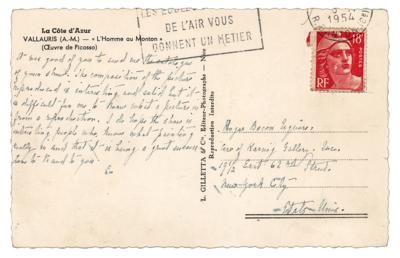 La Côte d'Azur
VALLAURIS (A.-M.) — "L'Homme au Mouton"
(Œuvre de Picasso)
It was good of you to send me the catalogue
of your show. The composition of the picture
reproduced is interesting and solid but it is
difficult for me to know what a picture is
from a reproduction. I do hope the show is
interesting people who know what painting
really is and that it is being a great success
for you.
DE L'AIR VOUS
DONNENT UN METIER
1954
18F
POSTES
RF
L. GILLETTA & Cie, Editeur-Photographe — Nice
Reproduction Interdite
Roger Bacon
Gallery, Inc.
East 62nd Street
New York City
Etats-Unis